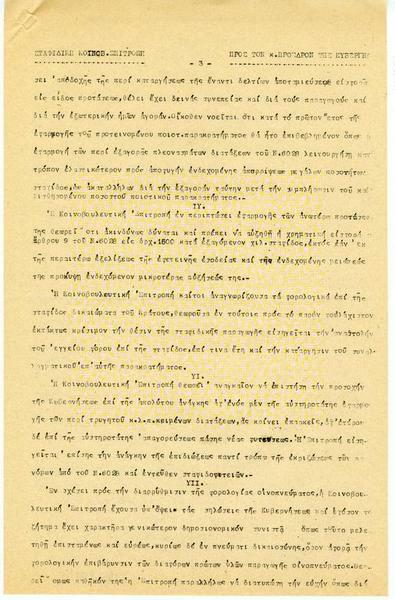 ΣΤΑΦΙΔΙΚΗ ΚΟΙΝΟΒ.ΕΠΙΤΡΟΠΗ ΠΡΟΣ ΤΟΝ κ.ΠΡΟΕΔΡΟΝ ΤΗΣ ΚΥΒΕΡΝΗ
- 3 -
σει ἀποδοχῆς τῆς περί καταργήσεως τῆς ἔναντι δελτίων ἀποταμιεύσεως εἰσφορᾶς
εἰς εἶδος προτάσεως,θέλει ἔχει δεινάς συνεπείας καί διά τούς παραγωγούς καί
διά τήν ἐξωτερικήν ἡμῶν ἀγοράν.Οἴκοθεν νοεῖται ὅτι κατά τό πρῶτον ἔτος τῆς
ἐφαρμογῆς τοῦ προτεινομένου ποιοτ.παρακρατήματος θά ἦτο ἐπιβεβλημένον ὅπως
ἐφαρμογή τῶν περί ἐξαγορᾶς πλεονασμάτων διατάξεων τοῦ Ν.6028 λειτουργήσῃ κατά
τρόπον ἐλαστικώτερον πρός ἀποφυγήν ἐνδεχομένης ἀπορρίψεως μεγάλων ποσοτήτων
σταφίδος,ὡς ἀκαταλλήλων διά τήν ἐξαγοράν ταύτην μετά τήν συμπλήρωσιν τοῦ
ποσοστοῦ ποιοτικοῦ παρακρατήματος.-
ΙV.
Ἡ Κοινοβουλευτική Ἐπιτροπή ἐν περιπτώσει ἐφαρμογῆς τῶν ἀνωτέρω προτάσεων
της θεωρεῖ ὅτι ἀκινδύνως δύναται καί πρέπει νά αὐξηθῇ ἡ χρηματική εἰσφορά
ἄρθρου 9 τοῦ Ν.6028 εἰς δρχ.1500 κατά ἐξαγόμενον χιλ.σταφίδος,ἐκτός ἐάν ἐκ
τῆς περαιτέρω ἐξελίξεως τῆς ἐφετεινῆς ἐσοδείας καί τῆς ἐνδεχομένης μειώσεώς
της προκύψῃ ἐνδεχόμενον μικροτέρας αὐξήσεώς της.-
Ἡ Κοινοβουλευτική Ἐπιτροπή καίτοι ἀναγνωρίζουσα τά φορολογικά ἐπί τῆς
σταφίδος δικαιώματα τοῦ Κράτους,θεωροῦσα ἐν τούτοις πρός τό παρόν τοὐλάχιστον
ἐκτάκτως κρίσιμον τήν θέσιν τῆς σταφιδικῆς παραγωγῆς εἰσηγεῖται τήν ἀναστολήν
τοῦ ἐγγείου φόρου ἐπί τῆς σταφίδος,ἐπί τινα ἔτη καί τήν κατάργησιν τοῦ συναλ-
λαγματικοῦ ἐπ'αὐτῆς παρακρατήματος.
VΙ.
Ἡ Κοινοβουλευτική Ἐπιτροπή θεωρεῖ ἀναγκαῖον νά ἐπιστήσῃ τήν προσοχήν
τῆς Κυβερνήσεως ἐπί τῆς ἀπολύτου ἀνάγκης ἀφ'ἑνός μέν τῆς αὐστηροτάτης ἐφαρμο-
γῆς τῶν περί τρυγητοῦ κ.λ.π.κειμένων διατάξεων,ἅς κρίνει ἐπαρκεῖς,ἀφ'ἑτέρου
δέ ἐπί τῆς αὐστηροτάτης ἀπαγορεύσεως πάσης νέας φυτεύσεως.Ἡ Ἐπιτροπή εἰση-
γεῖται ἐπίσης τήν ἀνάγκην τῆς ἐπιδιώξεως παντί τρόπῳ τῆς ἐκριζώσεως τῶν
νόμων ἀπό τοῦ Ν.6028 καί ἐντεῦθεν σταφιδοφυτειῶν.-
VΙΙ.
Ἐν σχέσει πρός τήν διαρρύθμισιν τῆς φορολογίας οἰνοπνεύματος,ἡ Κοινοβου-
λευτική Ἐπιτροπή ἔχουσα ὑπ'ὄψει τάς δηλώσεις τῆς Κυβερνήσεως καί ἐφόσον τό
ζήτημα ἔχει χαρακτῆρα γενικώτερον δημοσιονομικόν συνιστᾷ ὅπως τοῦτο μελε-
τηθῇ ἐπισταμένως καί εὐρέως,κυρίως δέ ἐν πνεύματι δικαιοσύνης,ὅσον ἀφορᾷ τήν
φορολογικήν ἐπιβάρυνσιν τῶν διαφόρων πρώτων ὑλῶν παραγωγῆς οἰνοπνεύματος.Θεω-
ρεῖ ὅμως καθῆκόν της ἡ Ἐπιτροπή παραλλήλως νά διατυπώσῃ τήν εὐχήν ὅπως διά